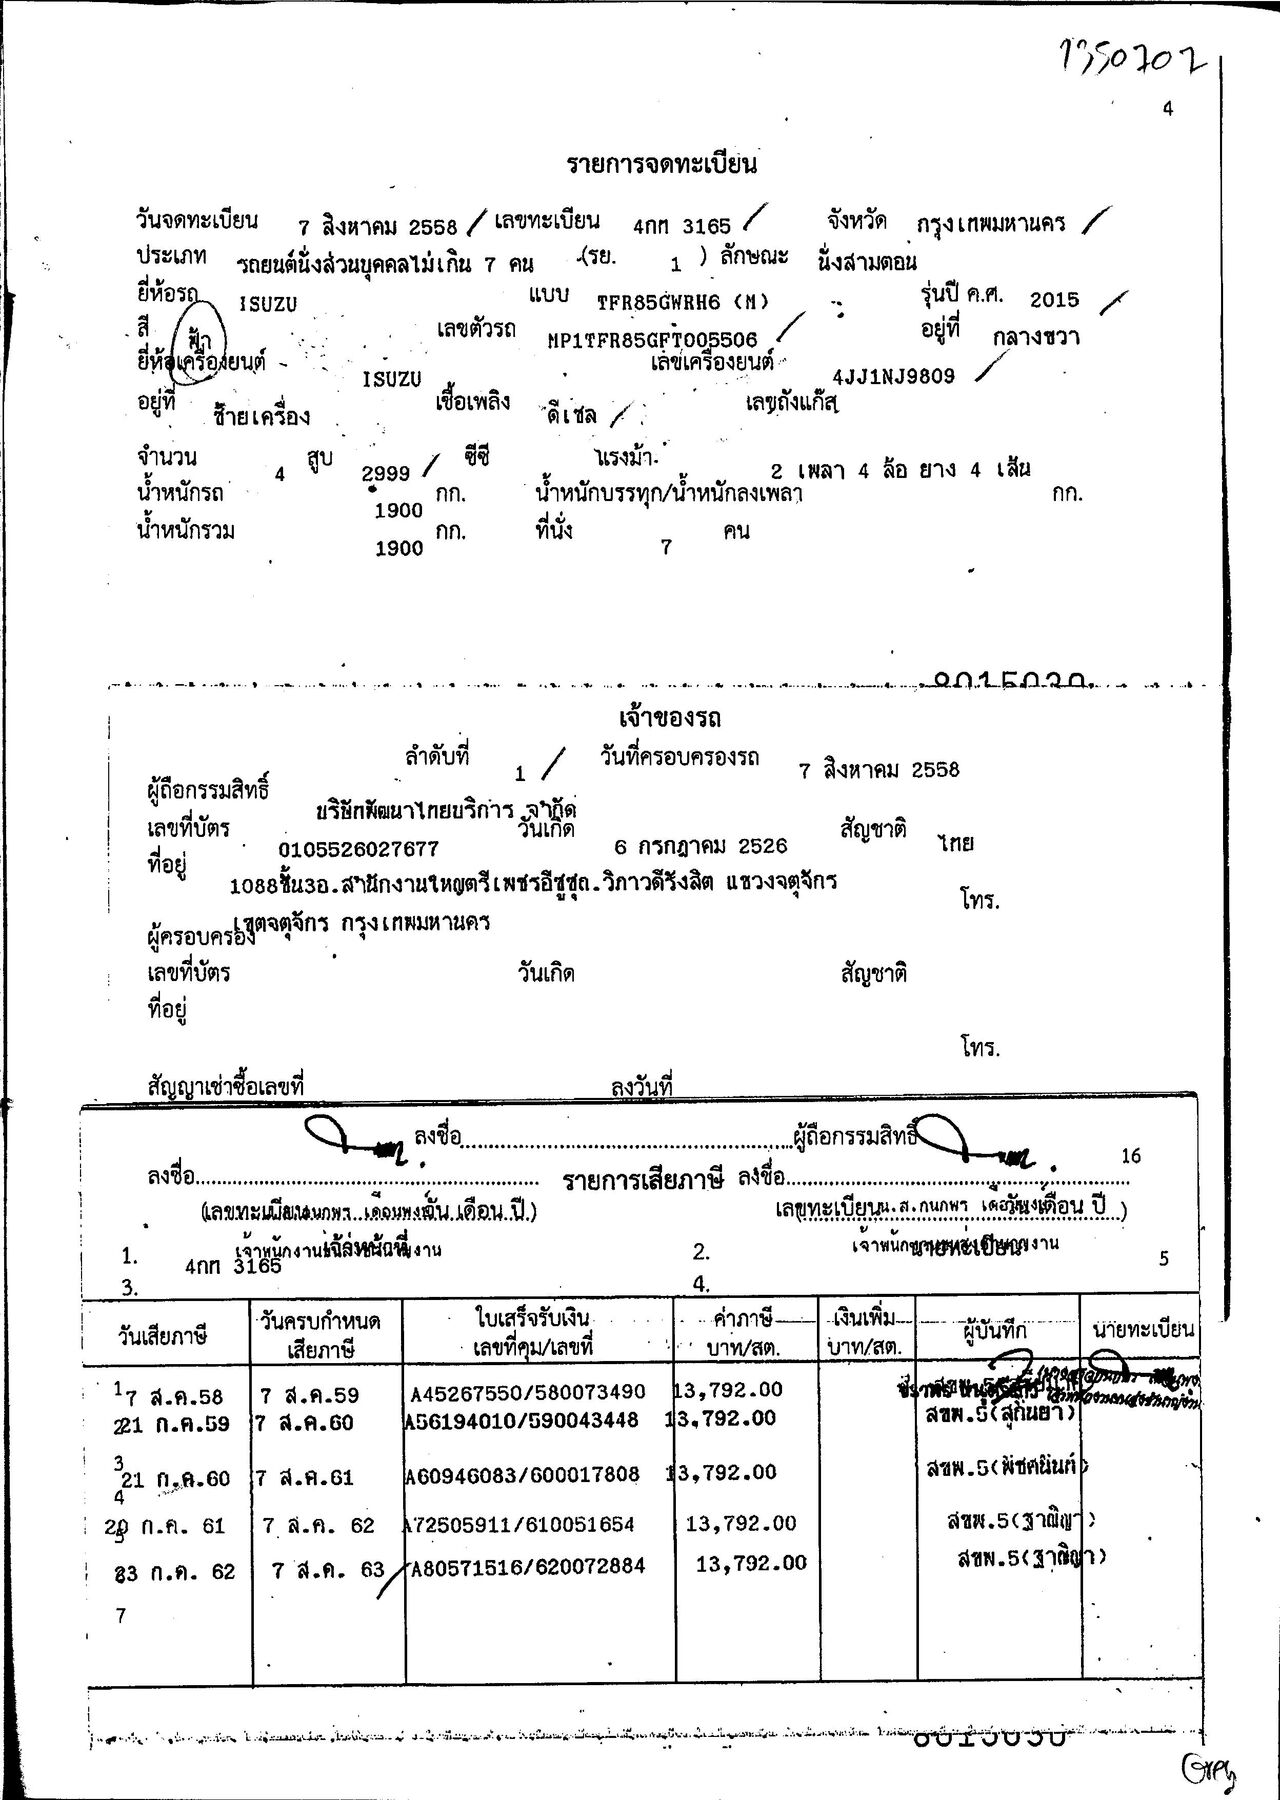 1350202
4
รายการจดทะเบียน
วันจดทะเบียน 7 สิงหาคม 2558 เลขทะเบียน 4กท 3165 จังหวัด กรุงเทพมหานคร
ประเภท รถยนต์นั่งส่วนบุคคลไม่เกิน 7 คน (รย. 1 ) ลักษณะ นั่งสามตอน
ยี่ห้อรถ ISUZU แบบ TFR85GWRH6 (M) รุ่นปี ค.ศ. 2015
สี ฟ้า เลขตัวรถ MP1TFR85GFT005506 อยู่ที่ กลางขวา
ยี่ห้อเครื่องยนต์ ISUZU เลขเครื่องยนต์ 4JJ1NJ9809
อยู่ที่ ซ้ายเครื่อง เชื้อเพลิง ดีเซล เลขถังแก๊ส
จำนวน 4 สูบ 2999 ซีซี แรงม้า 2 เพลา 4 ล้อ ยาง 4 เส้น
น้ำหนักรถ 1900 กก. น้ำหนักบรรทุก/น้ำหนักลงเพลา กก.
น้ำหนักรวม 1900 กก. ที่นั่ง 7 คน
8015030
เจ้าของรถ
ลำดับที่ 1 วันที่ครอบครองรถ 7 สิงหาคม 2558
ผู้ถือกรรมสิทธิ์ บริษัทพัฒนาไทยบริการ จำกัด
เลขที่บัตร 0105526027677 วันเกิด 6 กรกฎาคม 2526 สัญชาติ ไทย
ที่อยู่ 1088ชั้น3อ.สำนักงานใหญตรีเพชรอีซูซุถ.วิภาวดีรังสิต แขวงจตุจักร
โทร.
เขตจตุจักร กรุงเทพมหานคร
ผู้ครอบครอง
เลขที่บัตร วันเกิด สัญชาติ
ที่อยู่
โทร.
สัญญาเช่าซื้อเลขที่ ลงวันที่
ลงชื่อ ผู้ถือกรรมสิทธิ์
16
ลงชื่อ รายการเสียภาษี ลงชื่อ
(เลขทะเบียน วัน เดือน ปี) เลขทะเบียน วัน เดือน ปี )
เจ้าหน้าที่ นายทะเบียน
1. 4กท 3165 2. 5
3. 4.
วันเสียภาษี วันครบกำหนดเสียภาษี ใบเสร็จรับเงิน เลขที่คุม/เลขที่ ค่าภาษี บาท/สต. เงินเพิ่ม บาท/สต. ผู้บันทึก นายทะเบียน
1 7 ส.ค.58 7 ส.ค.59 A45267550/580073490 13,792.00
2 21 ก.ค.59 7 ส.ค.60 A56194010/590043448 13,792.00 สขพ.5(สุกันยา)
3 21 ก.ค.60 7 ส.ค.61 A60946083/600017808 13,792.00 สขพ.5(พิชศนันท์)
4
20 ก.ค. 61 7 ส.ค. 62 A72505911/610051654 13,792.00 สขพ.5(ฐาณิญา)
5
23 ก.ค. 62 7 ส.ค. 63 A80571516/620072884 13,792.00 สขพ.5(ฐาณิญา)
7
8015030